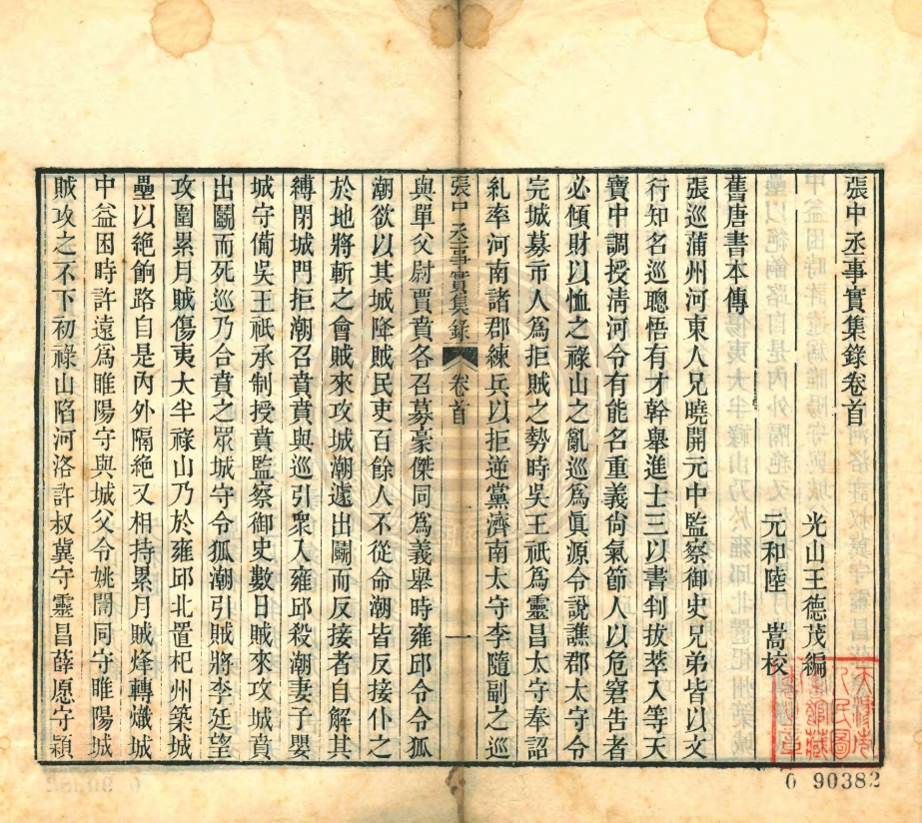 張中丞事實集錄卷首
光山王德茂編
元和陸　嵩校
舊唐書本傳
張巡蒲州河東人兄曉開元中監察御史兄弟皆以文
行知名巡聰悟有才幹舉進士三以書判拔萃入等天
寶中調授清河令有能名重義尚氣節人以危窘告者
必傾財以恤之祿山之亂巡為眞源令說譙郡太守令
完城募市人為拒賊之勢時吳王祗為靈昌太守奉詔
糺率河南諸郡練兵以拒逆黨濟南太守李隨副之巡
張中丞事實集錄　卷首　一
與單父尉賈賁各召募豪傑同為義舉時雍邱令令狐
潮欲以其城降賊民吏百餘人不從命潮皆反接仆之
於地將斬之會賊來攻城潮遽出鬭而反接者自解其
縛閉城門拒潮召賁賁與巡引衆入雍邱殺潮妻子嬰
城守備吳王祗承制授賁監察御史數日賊來攻城賁
出鬭而死巡乃合賁之眾城守令狐潮引賊將李廷望
攻圍累月賊傷夷大半祿山乃於雍邱北置杞州築城
壘以絕餉路自是內外隔絕又相持累月賊烽轉熾城
中益困時許遠為睢陽守與城父令姚誾同守睢陽城
賊攻之不下初祿山陷河洛許叔冀守靈昌薛愿守潁
天津市
人民圖
書館藏
0 90382